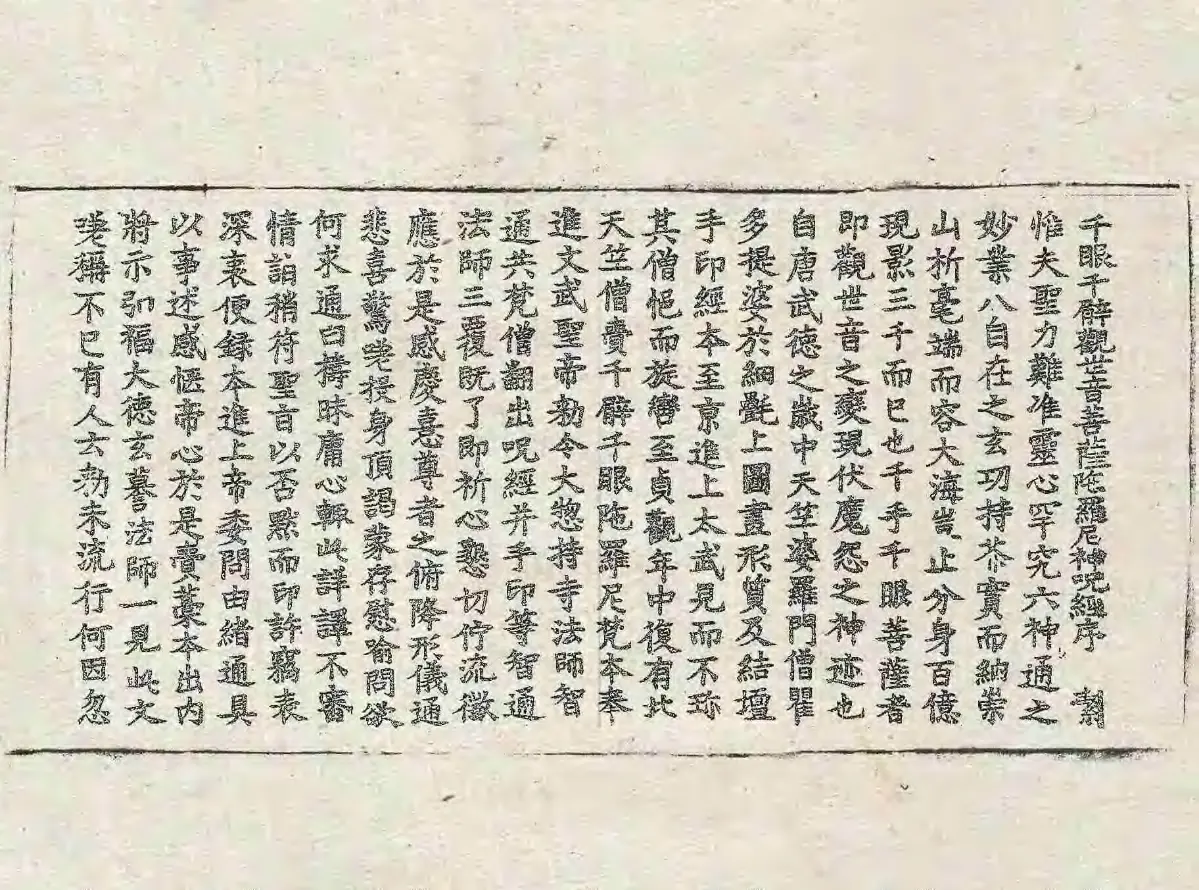 千眼千臂觀世音菩薩陁羅尼神呪經序
惟夫聖力難准靈心罕究六神通之
妙業八自在之玄功持芥實而納崇
山析毫端而容大海豈止分身百億
現影三千而已也千手千眼菩薩者
即觀世音之變現伏魔怨之神迹也
自唐武德之歲中天竺婆羅門僧瞿
多提婆於細㲲上圖畫形質及結壇
手印經本至京進上太武見而不珎
其僧悒而旋轡至貞觀年中復有北
天竺僧賷千臂千眼陁羅尼梵本奉
進文武聖帝勑令大惣持寺法師智
通共梵僧翻出呪經并手印等智通
法師三覆既了即祈心懇切佇流徵
應於是感慶喜尊者之俯降形儀通
悲喜驚嗟投身頂謁蒙存慰喻問欲
何求通曰搆昧庸心輙此詳譯不審
情詣稍符聖旨以否默而印許竊表
深衷便錄本進上帝委問由緒通具
以事述感愜帝心於是賷藁本出內
將示弘福大德玄暮法師一見此文
嗟稱不已有人云勑未流行何因忽